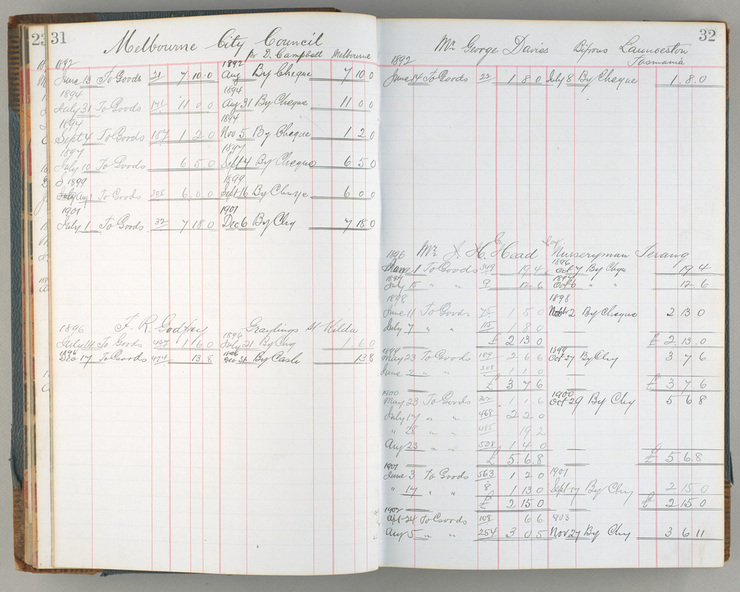 23 31
Melbourne City Council
Dr D. Campbell Melbourne
1892 1892
June 13 To Goods 21 7 10 0 Aug By Cheque 7 10 0
1894 1894
July 31 To Goods 11 0 0 Aug 31 By Cheque 11 0 0
1894 1894
Sept 4 To Goods 157 1 2 0 Nov 5 By Cheque 1 2 0
1897 1897
July 10 To Goods 6 5 0 Sept 14 By Cheque 6 5 0
1899 1899
Aug 1 To Goods 6 0 0 Sept 16 By Cheque 6 0 0
1901 1901
July 1 To Goods 32 7 18 0 Dec 6 By Chq 7 18 0
1896 F. R. Godfrey Graylings St Kilda
1896
July 14 To Goods 1 6 0 July 21 By Chq 1 6 0
1896 1896
Dec 17 To Goods 13 8 Dec 31 By Cash 13 8
32
Mr George Davies Bifrons Launceston
Tasmania
1892
June 14 To Goods 22 1 8 0 July 8 By Cheque 1 8 0
1896 Mr J. H. Head Nurseryman Serang
1896
June 1 To Goods 19 4 Oct 7 By Chque 19 4
1897 1897
July 15 " " 9 12 6 Oct 6 " 12 6
1898 1898
June 11 To Goods 75 1 5 0 Nov 2 By Cheque 2 13 0
July 7 " " 115 1 8 0
£ 2 13 0 £ 2 13 0
1899 1899
May 23 To Goods 2 6 6 Oct 27 By Chq 3 7 6
June 2 " " 1 1 0
£ 3 7 6 £ 3 7 6
1900 1900
May 23 To Goods 1 1 6 Oct 29 By Chq 5 6 8
July 17 " " 468 2 2 0
" 28 " " 485 19 2
Aug 23 " " 528 1 4 0
£ 5 6 8 £ 5 6 8
1901 1901
June 3 To Goods 563 1 2 0
" 17 " " 8 1 13 0 Sept 27 By Chq 2 15 0
£ 2 15 0 £ 2 15 0
1902 1903
Apl 24 To Goods 108 6 6
Aug 5 " " 254 3 0 5 Nov 27 By Chq 3 6 11